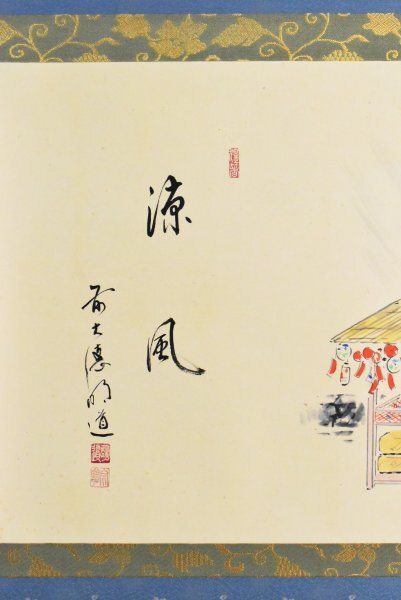 涼風
前大徳明道